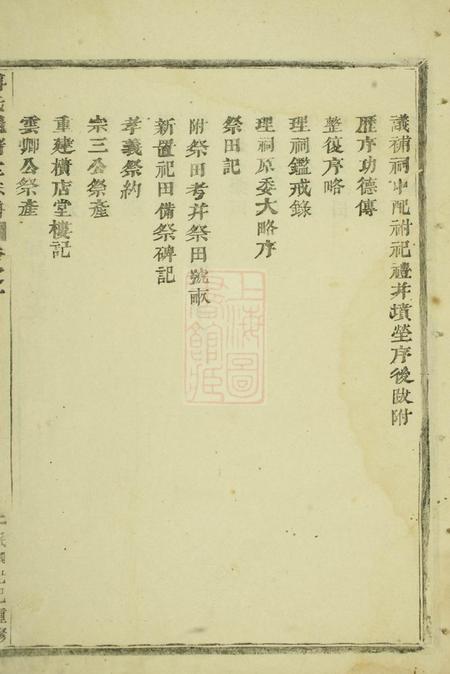 議補祠中配祔祀禮并墳塋序後跋附
歷序功德傳
整復序略
理祠鑑戒錄
理祠原委大略序
祭田記
附祭田考并祭田號畝
新置祀田備祭碑記
孝義祭約
宗三公祭產
重建橫店堂樓記
雲卿公祭產
上海圖書館藏